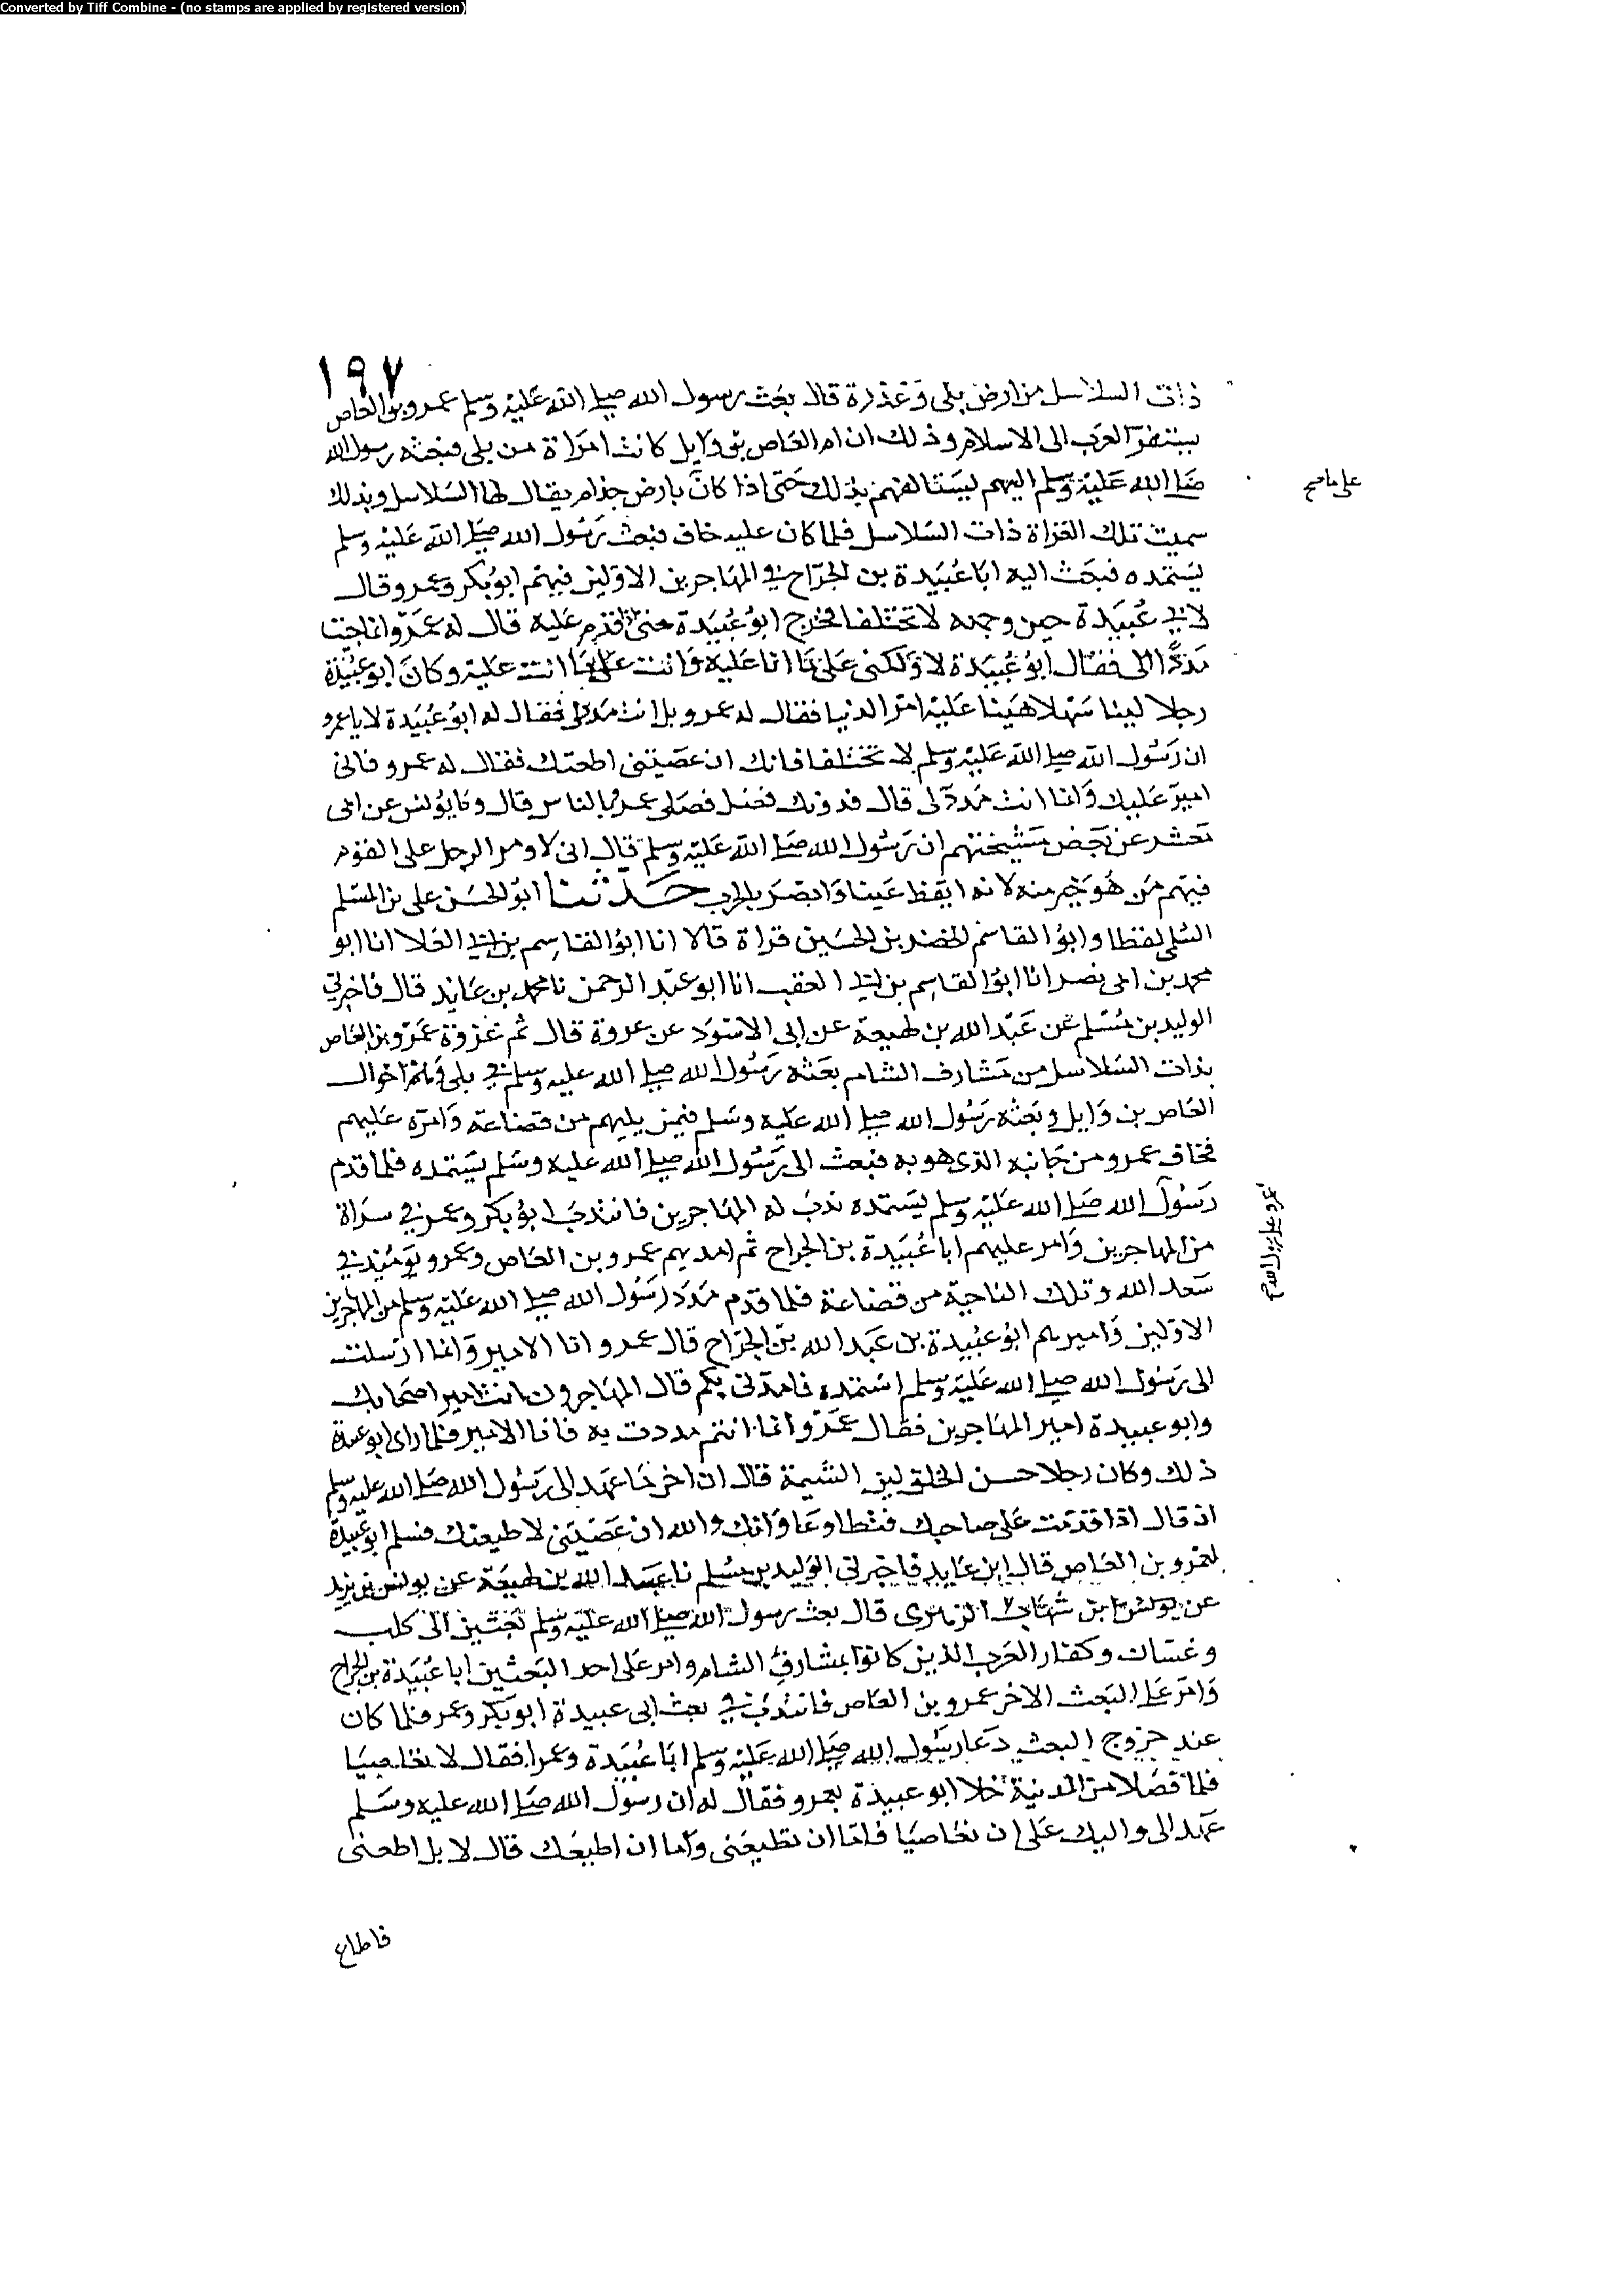 Converted by Tiff Combine - (no stamps are applied by registered version)
١٩٧
ذات السلاسل من ارض بلى وعذرة قال بعث رسول الله صلى الله عليه وسلم عمرو بن العاص
يستنفر العرب الى الاسلام وذلك ان ام العاص بن وايل كانت امراة من بلى فبعثه رسول الله
صلى الله عليه وسلم اليهم ليستالفهم بذلك حتى اذا كان بارض جذام يقال لها السلاسل وبذلك
سميت تلك الغزاة ذات السلاسل فلما كان عليه خاف فبعث رسول الله صلى الله عليه وسلم
يستمده فبعث اليه ابا عبيدة بن الجراح في المهاجرين الاولين فيهم ابو بكر وعمر وقال
لابي عبيدة حين وجهه لا تختلفا فخرج ابو عبيدة حتى اذا قدم عليه قال له عمرو انما جئت
مددا الى فقال ابو عبيدة لا ولكنى على ما انا عليه وانت على ما انت عليه وكان ابو عبيدة
رجلا لينا سهلا هينا عليه امر الدنيا فقال له عمرو بل انت مدد لى فقال له ابو عبيدة لا يا عمرو
ان رسول الله صلى الله عليه وسلم لا تختلفا فانك ان عصيتنى اطعتك فقال له عمرو فانى
امير عليك وانما انت مدد لى قال فدونك فصل فصلى عمرو بالناس قال ونا يونس عن ابى
معشر عن بعض مشيختهم ان رسول الله صلى الله عليه وسلم قال انى لاومر الرجل على القوم
فيهم من هو خير منه لانه ايقظ عينا وابصر بالحرب حدثنا ابو الحسن على بن المسلم
السلمى لفظا وابو القاسم الخضر بن الحسين قراة قالا انا ابو القاسم بن ابي العلا انا ابو
محمد بن ابى نصر انا ابو القاسم بن ابي العقب انا ابو عبد الرحمن نا محمد بن عايذ قال فاخبرني
الوليد بن مسلم عن عبد الله بن لهيعة عن ابى الاسود عن عروة قال ثم غزوة عمرو بن العاص
بذات السلاسل من مشارف الشام بعثه رسول الله صلى الله عليه وسلم في بلى وهم اخوال
العاص بن وايل وبعثه رسول الله صلى الله عليه وسلم فيمن يليهم من قضاعة وامره عليهم
فخاف عمرو من جانبه الذى هو به فبعث الى رسول الله صلى الله عليه وسلم يستمده فلما قدم
رسول الله صلى الله عليه وسلم يستمده ندب له المهاجرين فانتدب ابو بكر وعمر في سراة
من المهاجرين وامر عليهم ابا عبيدة بن الجراح ثم امد بهم عمرو بن العاص وعمرو يومئذ في
سعد الله وتلك الناحية من قضاعة فلما قدم مدد رسول الله صلى الله عليه وسلم من المهاجرين
الاولين واميرهم ابو عبيدة بن عبد الله بن الجراح قال عمرو انا الامير وانما ارسلت
الى رسول الله صلى الله عليه وسلم استمده فامدنى بكم قال المهاجرون انت امير اصحابك
وابو عبيدة امير المهاجرين فقال عمرو انما انتم مددت به فانا الامير فلما راى ابو عبيدة
ذلك وكان رجلا حسن الخلق لين الشيمة قال ان اخر ما عهد الى رسول الله صلى الله عليه وسلم
ان قال اذا قدمت على صاحبك فتطاوعا وانك والله ان عصيتنى لاطيعنك فسلم ابو عبيدة
لعمرو بن العاص قال ابن عايذ فاخبرني الوليد بن مسلم نا عبد الله بن لهيعة عن يونس بن يزيد
عن يونس ابن شهاب الزهرى قال بعث رسول الله صلى الله عليه وسلم بعثين الى كلب
وغسان وكفار العرب الذين كانوا بمشارف الشام وامر على احد البعثين ابا عبيدة بن الجراح
وامر على البعث الاخر عمرو بن العاص فانتدب في بعث ابى عبيدة ابو بكر وعمر فلما كان
عند خروج البعث دعا رسول الله صلى الله عليه وسلم ابا عبيدة وعمرا فقال لا تعاصيا
فلما فصلا من المدينة خلا ابو عبيدة بعمرو فقال له ان رسول الله صلى الله عليه وسلم
عهد الى واليك على ان تعاصيا فاما ان تطيعنى واما ان اطيعك قال لا بل اطعنى
فاطاع
على ما صح